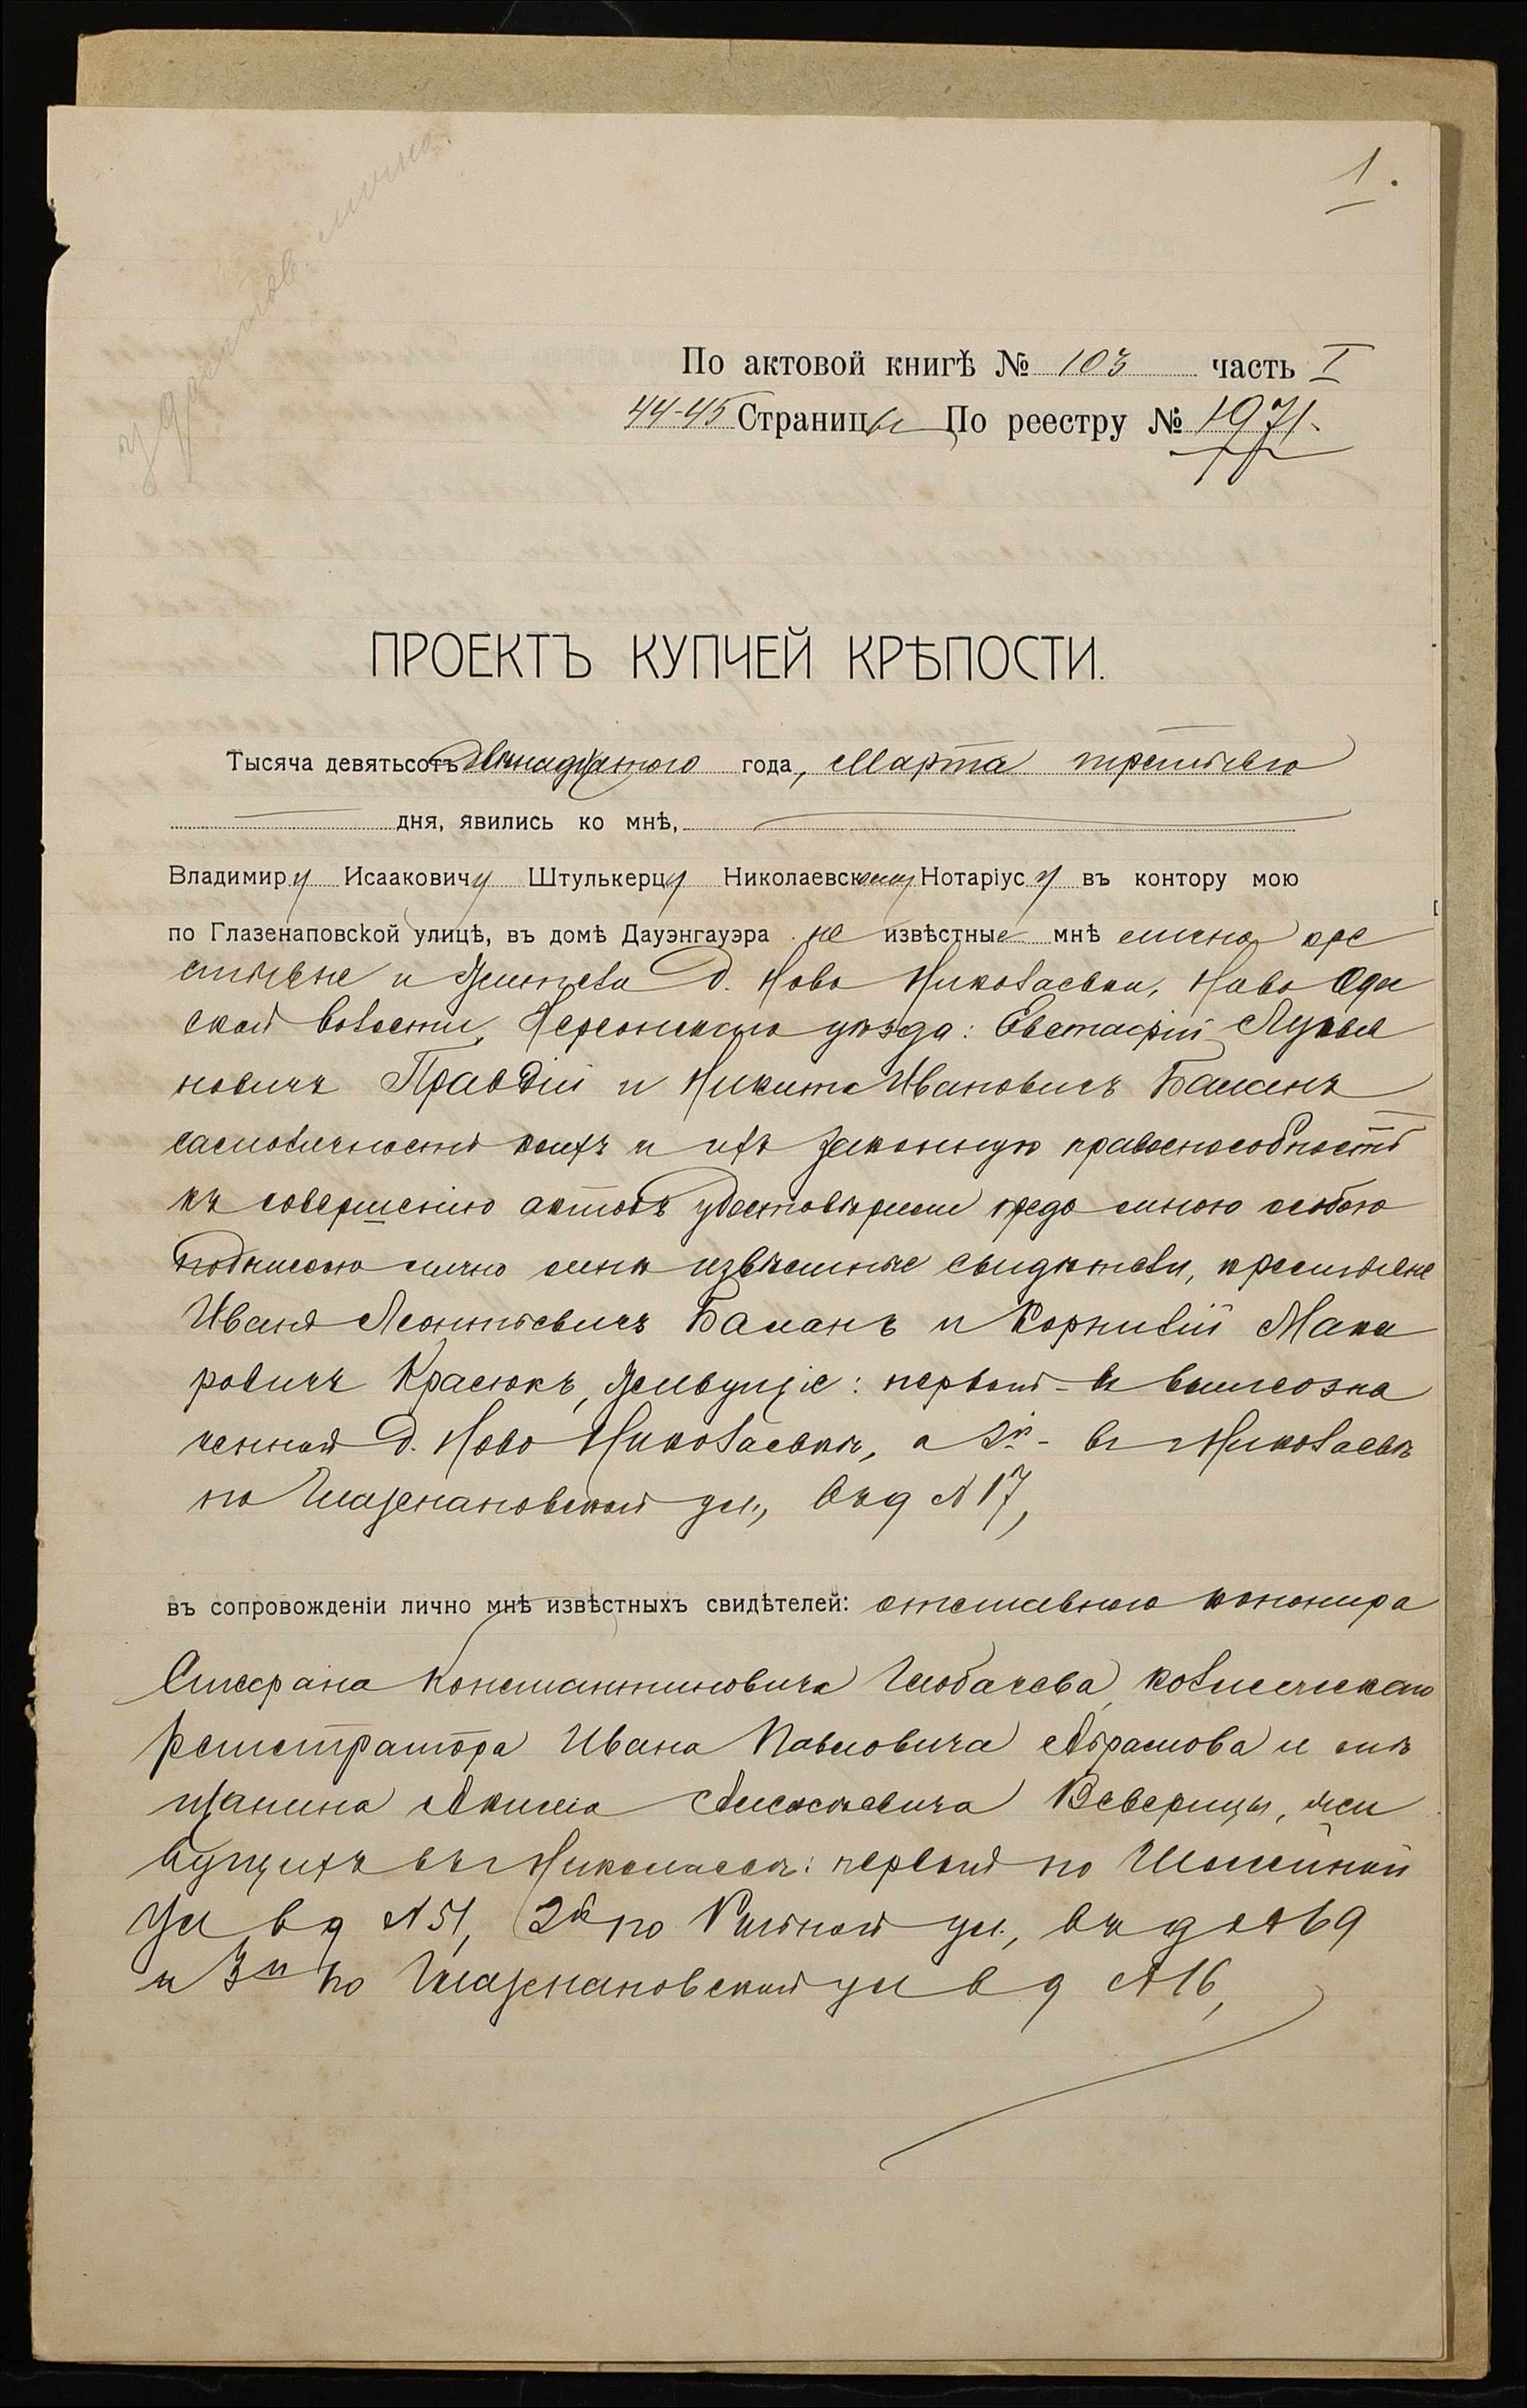 1.
По актовой книгѣ № 103 часть I
44-45 Страницы По реестру № 1971.
ПРОЕКТЪ КУПЧЕЙ КРѢПОСТИ.
Тысяча девятьсотъ двѣнадцатого года, Марта третьяго
дня, явились ко мнѣ,
Владимиру Исааковичу Штулькерцу Николаевскому Нотаріусу въ контору мою
по Глазенаповской улицѣ, въ домѣ Дауэнгауэра не извѣстные мнѣ лично кре
стьяне и жители д. Ново Николаевки, Ново Оде
ской волости, Херсонскаго уѣзда: Евстафій Лукья
новичъ Правдій и Никита Ивановичъ Баланъ
самоличность коихъ и ихъ законную правоспособность
къ совершенію актовъ удостовѣрили предо мною особою
подписью лично мнѣ извѣстные свидѣтели, крестьяне
Иванъ Леонтьевичъ Баланъ и Корнилій Мака
ровичъ Красюкъ, живущіе: первый - въ вышеозна
ченной д. Ново Николаевкѣ, а 2й - въ Николаевѣ
по Глазенаповской ул., въ д № 17,
въ сопровожденіи лично мнѣ извѣстныхъ свидѣтелей: отставного канонира
Стефана Константиновича Глобачева, коллежскаго
регистратора Ивана Павловича Абрамова и мѣ
щанина Акима Алексѣевича Веверицы, жи
вущихъ въ Николаевѣ: первый по
ул в д № 51, 2й по ул., въ д № 69
и 3й по Глазенаповской ул в д № 16,